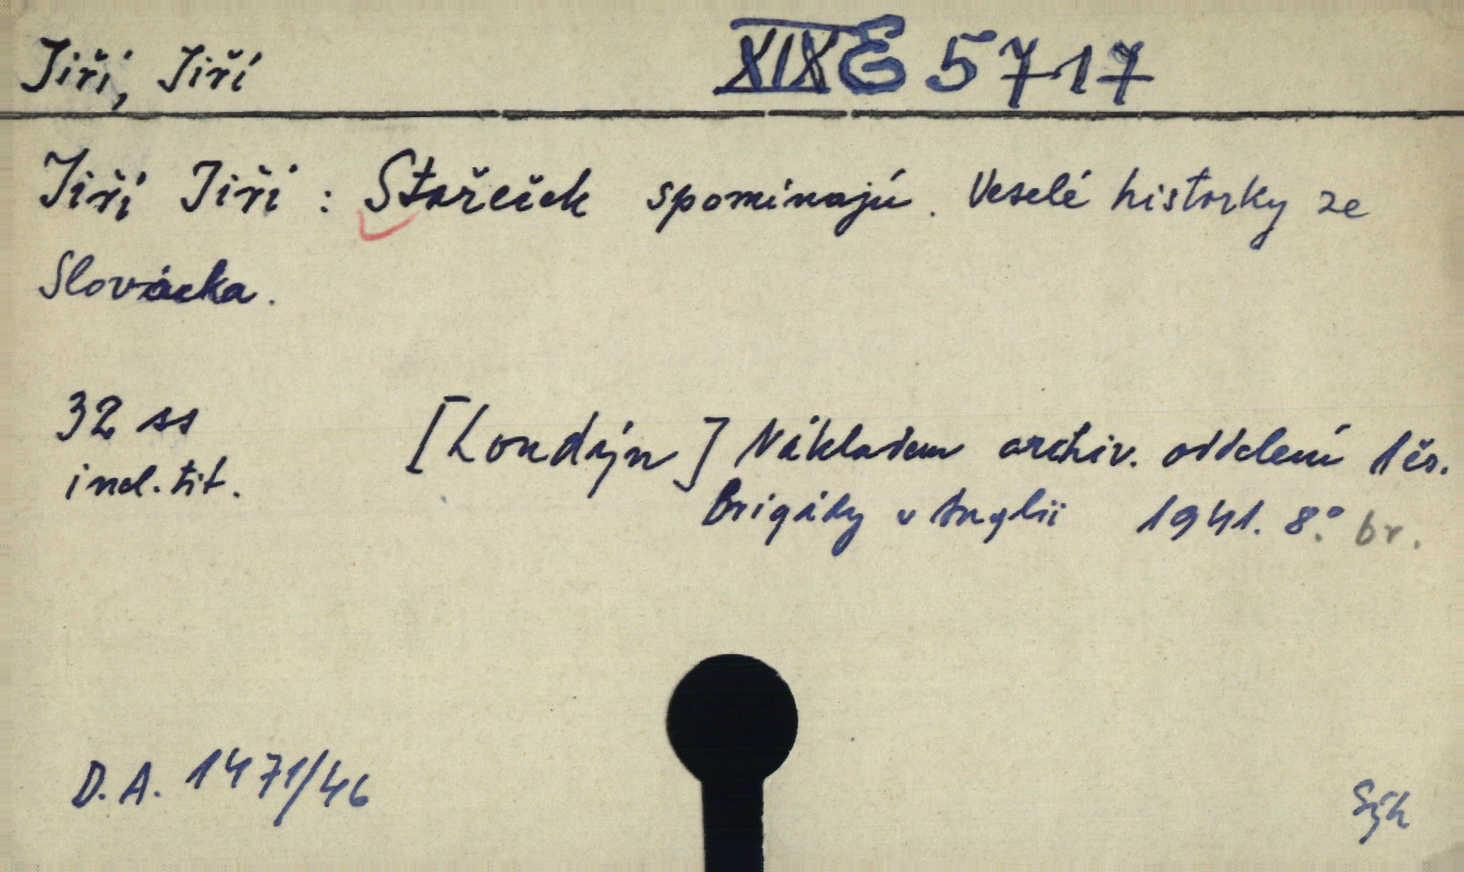 Jiří, Jiří XIX E 5717
Jiří Jiří: Stařeček spomínajú. Veselé historky ze
Slovácka.
32 ss [Londýn] Nákladem archiv. oddelení 1 čs.
incl. tit. Brigády v Anglii 1941. 8.° br.
D.A. 1471/46